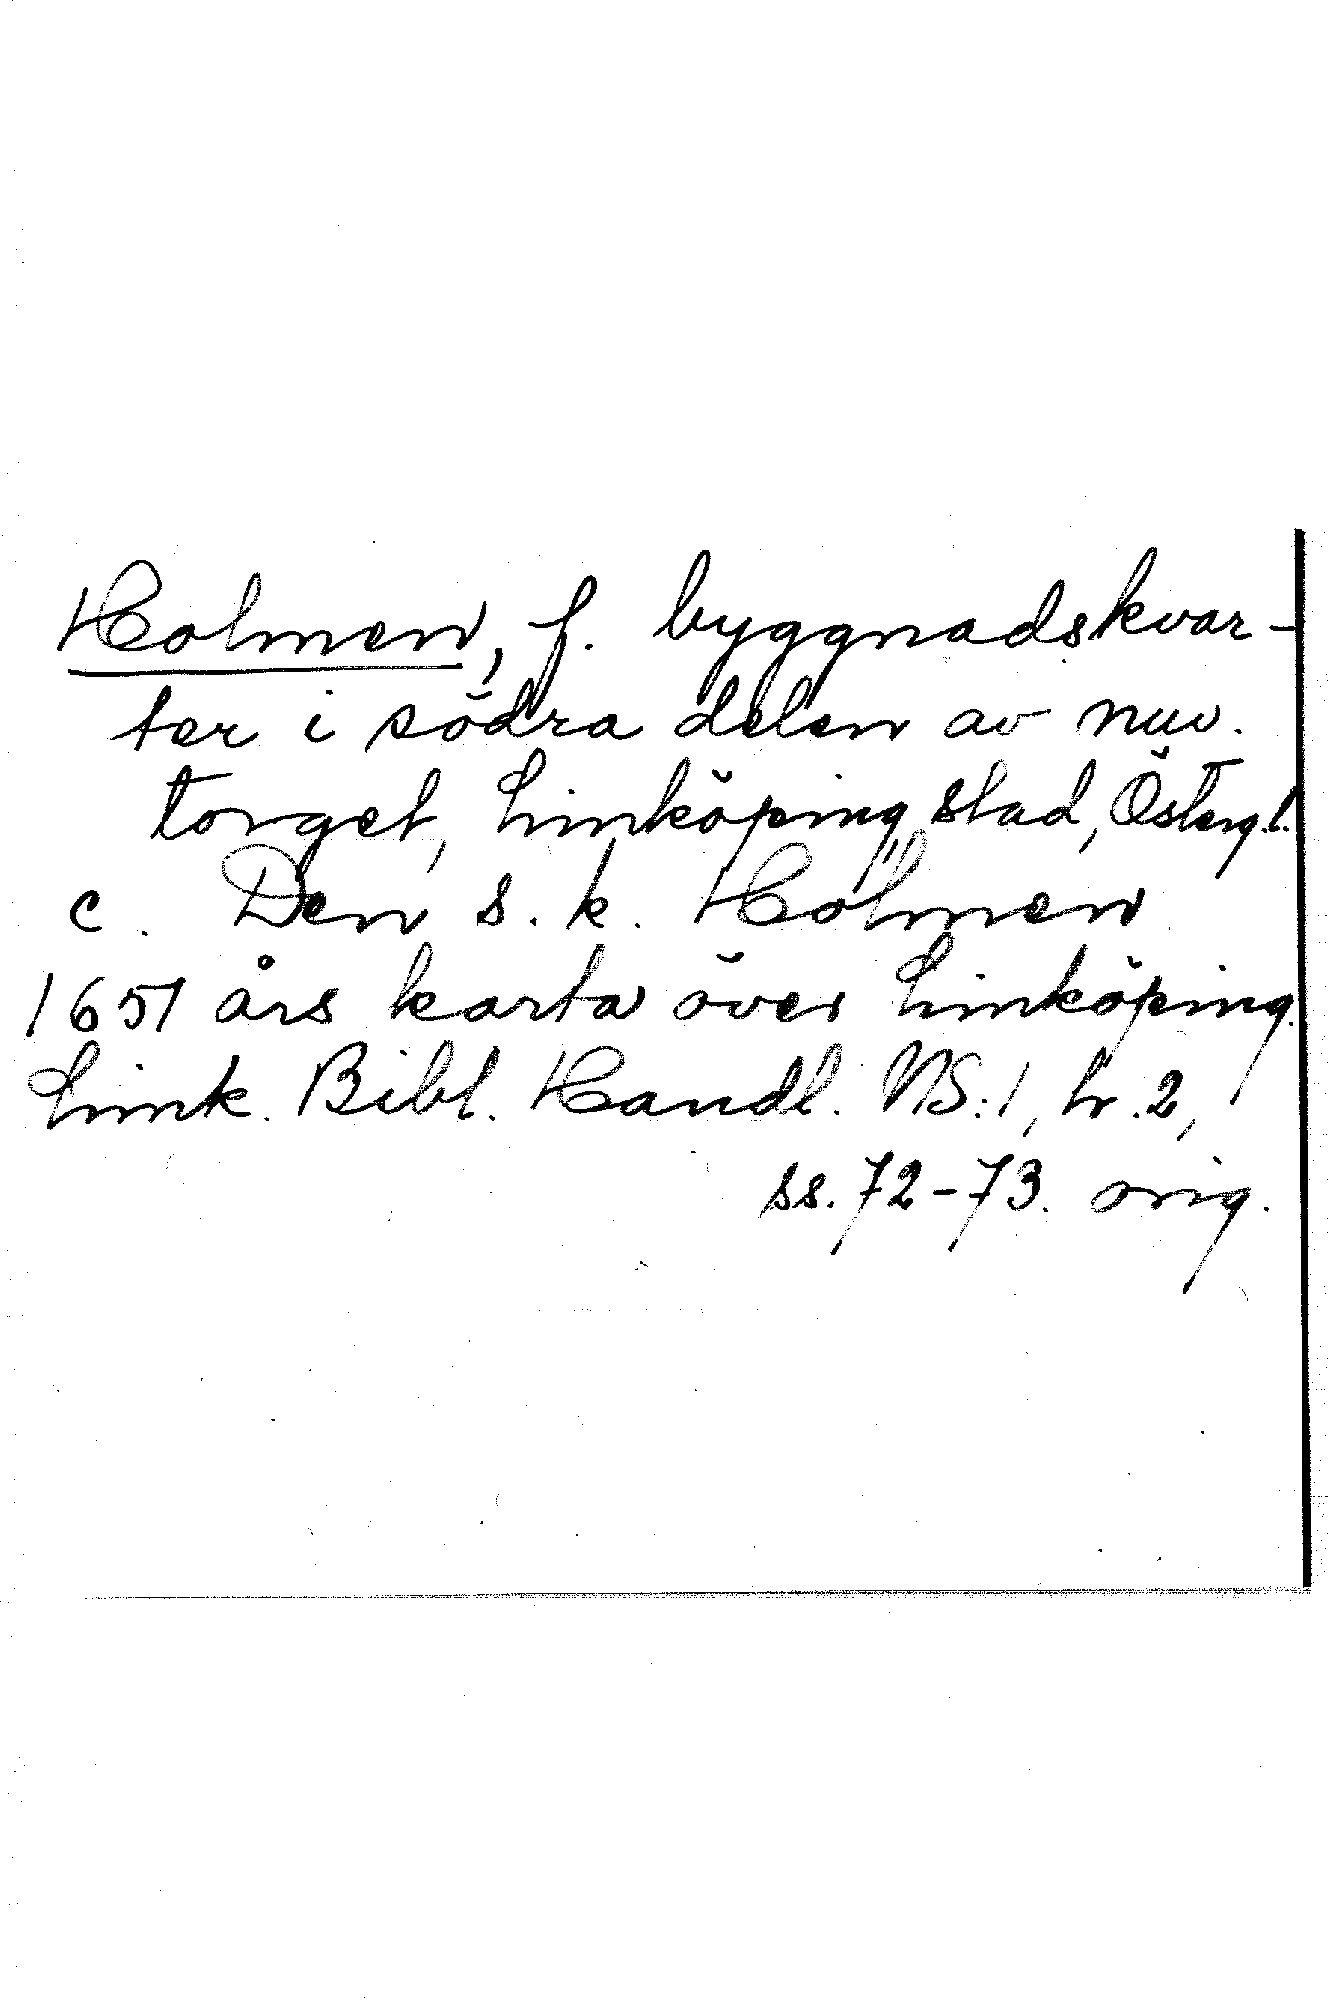 Holmen, f. byggnadskvar-
ter i södra delen av nuv.
torget, Linköping stad, Östergl.
c. Den s. k. Holmen
1651 års karta över Linköping.
Link. Bibl. Handl. NS:1, h. 2,
ss. 72-73. orig.